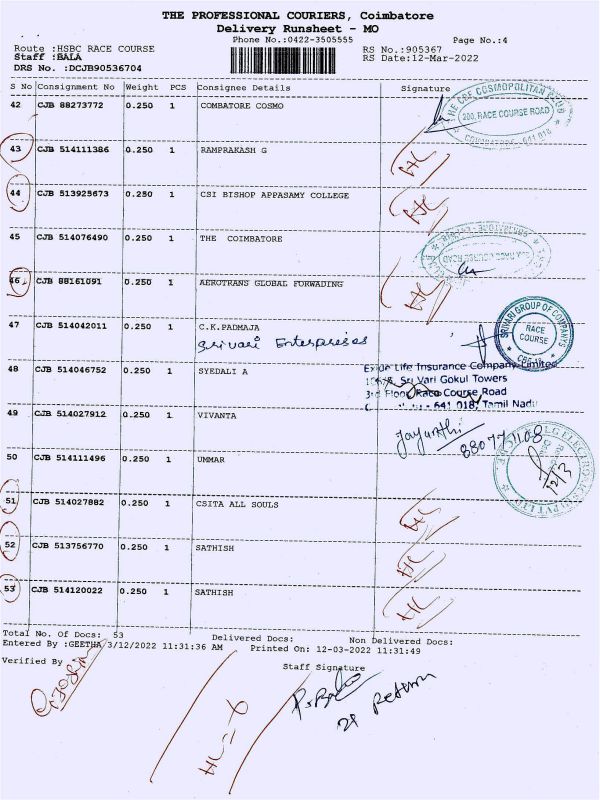 THE PROFESSIONAL COURIERS, Coimbatore
Delivery Runsheet - MO
Phone No.:0422-3505555 Page No.:4
Route :HSBC RACE COURSE RS No.:905367
Staff :BALA RS Date:12-Mar-2022
DRS No. :DCJB90536704
S No Consignment No Weight PCS Consignee Details Signature
42 CJB 88273772 0.250 1 COMBATORE COSMO
THE CBE COSMOPOLITAN CLUB
200, RACE COURSE ROAD
COIMBATORE - 641 018
43 CJB 514111386 0.250 1 RAMPRAKASH G
44 CJB 513925673 0.250 1 CSI BISHOP APPASAMY COLLEGE
45 CJB 514076490 0.250 1 THE COIMBATORE
46 CJB 88161091 0.250 1 AEROTRANS GLOBAL FORWADING
47 CJB 514042011 0.250 1 C.K.PADMAJA
Srivari Enterprises
SRIVARI GROUP OF COMPANYS
RACE
COURSE
CBE-18
48 CJB 514046752 0.250 1 SYEDALI A
Exide Life Insurance Company Limited
Sri Vari Gokul Towers
3rd Floor, Race Course Road
- 641 018, Tamil Nadu
49 CJB 514027912 0.250 1 VIVANTA
Jayanthi
50 CJB 514111496 0.250 1 UMMAR
12/3
51 CJB 514027882 0.250 1 CSITA ALL SOULS
52 CJB 513756770 0.250 1 SATHISH
53 CJB 514120022 0.250 1 SATHISH
Total No. Of Docs: 53 Delivered Docs: Non Delivered Docs:
Entered By :GEETHA 3/12/2022 11:31:36 AM Printed On: 12-03-2022 11:31:49
Verified By Staff Signature
Return